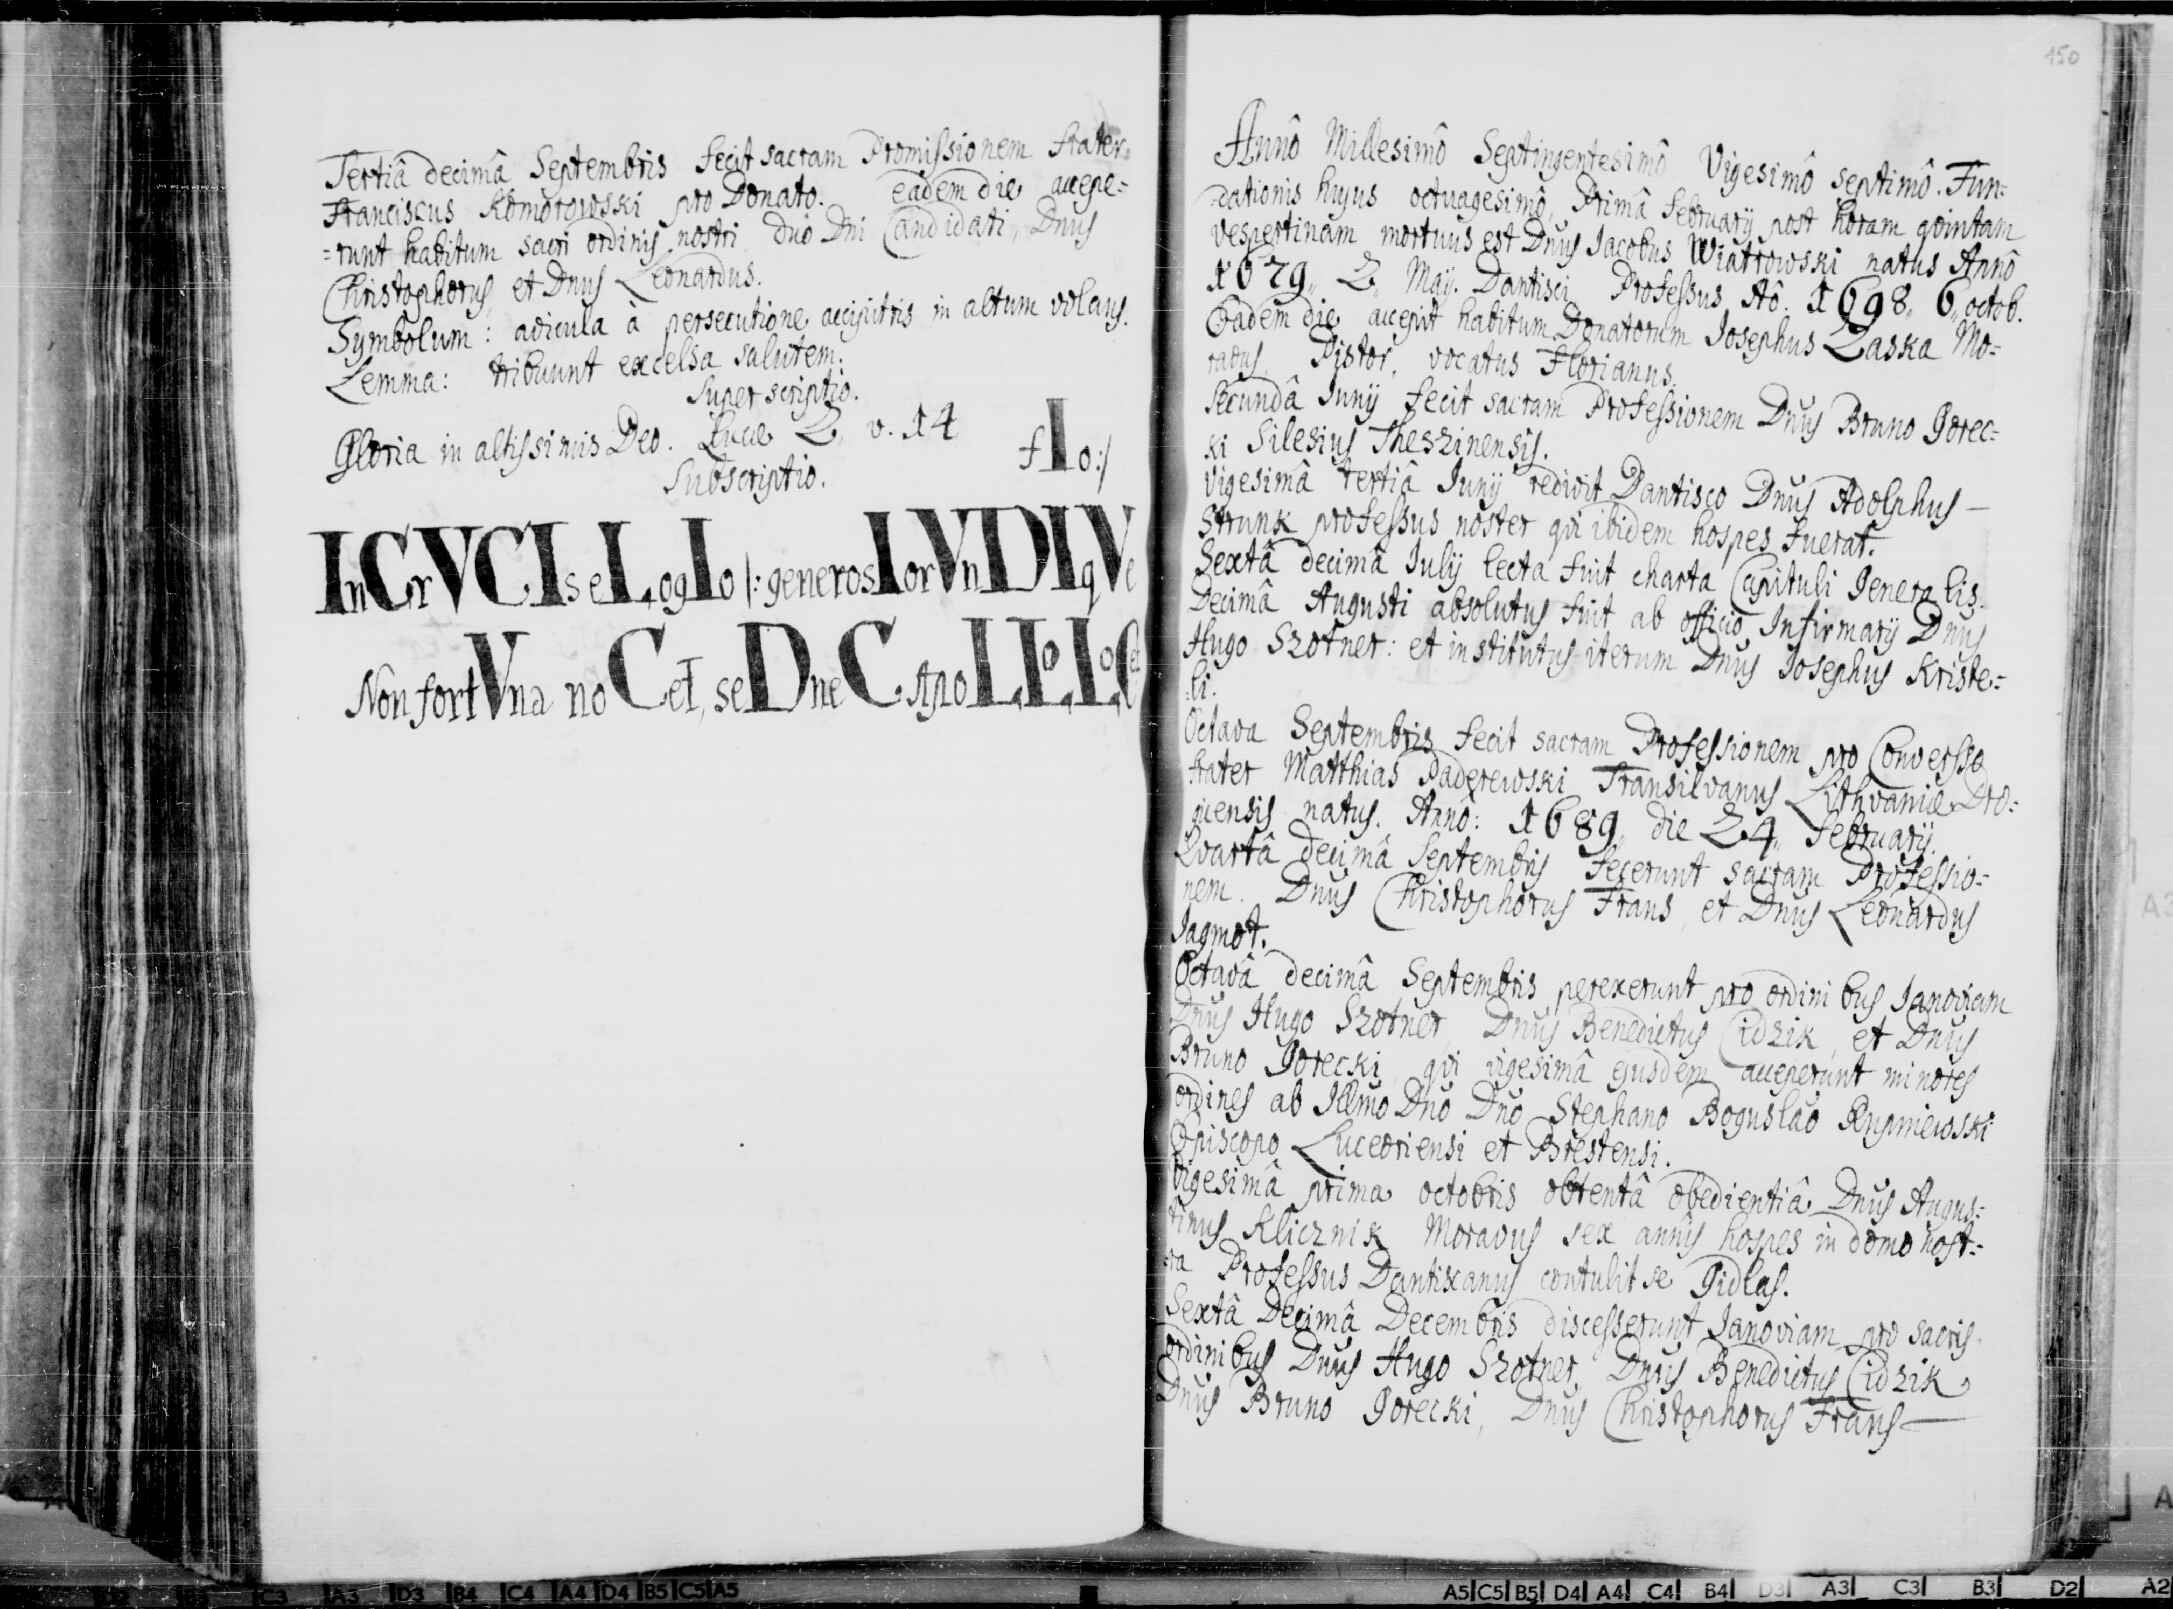 Tertiâ decimâ Septembris fecit sacram Promissionem frater
Franciscus Komorowski pro Donato. eadem die accepe=
=runt habitum sacri ordinis nostri duo Dni Candidati, Dnus
Christophorus, et Dnus Leonardus.
Symbolum: avicula à persecutione accipitris in altum volans.
Lemma: tribuunt excelsa salutem.
Superscriptio.
Gloria in altissimis Deo. Lucæ 2, v. 14
Subscriptio.
fIo:/
InCrVCIs eLogIo /: generosIorVnDIqVe
Non fortVna noCet, seD neC ApoLLo LoCet
150
Annô Millesimô Septingentesimô Vigesimô septimô. Fun=
=dationis hujus octuagesimô, Primâ February post horam qvintam
vespertinam mortuus est Dnus Jacobus Wiatrowski natus Annô
1679,, 2,, Maij. Dantisci Professus Aô. 1698,, 6,, octob.
Eadem die accepit habitum Donatorum Josephus Laska Mo=
ravus, Pistor, vocatus Florianus.
Secundâ Junij fecit sacram Professionem Dnus Bruno Gorec=
ki Silesius Theszinensis.
Vigesimâ tertiâ Junij redivit Dantisco Dnus Adolphus —
Strunk professus noster qvi ibidem hospes fuerat.
Sextâ decimâ Julij lecta fuit charta Capituli Generalis.
Decimâ Augusti absolutus fuit ab officio Infirmarij Dnus
Hugo Szotner: et institutus iterum Dnus Josephus Kriste=
=li.
Octava Septembris fecit sacram Professionem pro Conversso
frater Matthias Paderewski Transilvanus Lithvaniæ Dro=
=giensis natus. Annô: 1689,, die 24,, February.
Qvartâ decimâ Septembris fecerunt sacram Professio=
nem. Dnus Christophorus Frans, et Dnus Leonardus
Jagmot.
Octavâ decimâ Septembris perexerunt pro ordinibus Janoviam
Dnus Hugo Szotner, Dnus Benedictus Cidzik, et Dnus
Bruno Gorecki, qvi vigesimâ ejusdem acceperunt minores
ordines ab Illmo Dno Dno Stephano Boguslao Rupniewski
Episcopo Luceoriensi et Brestensi.
Vigesimâ prima octobris obtentâ obedientiâ Dnus Augus=
tinus Klicznik Moravus sex annis hospes in domo nost=
=ra Professus Dantiscanus contulit se Gidlas.
Sextâ Decimâ Decembris discesserunt Janoviam pro sacris
ordinibus Dnus Hugo Szotner, Dnus Benedictus Cidzik,
Dnus Bruno Gorecki, Dnus Christophorus Frans —